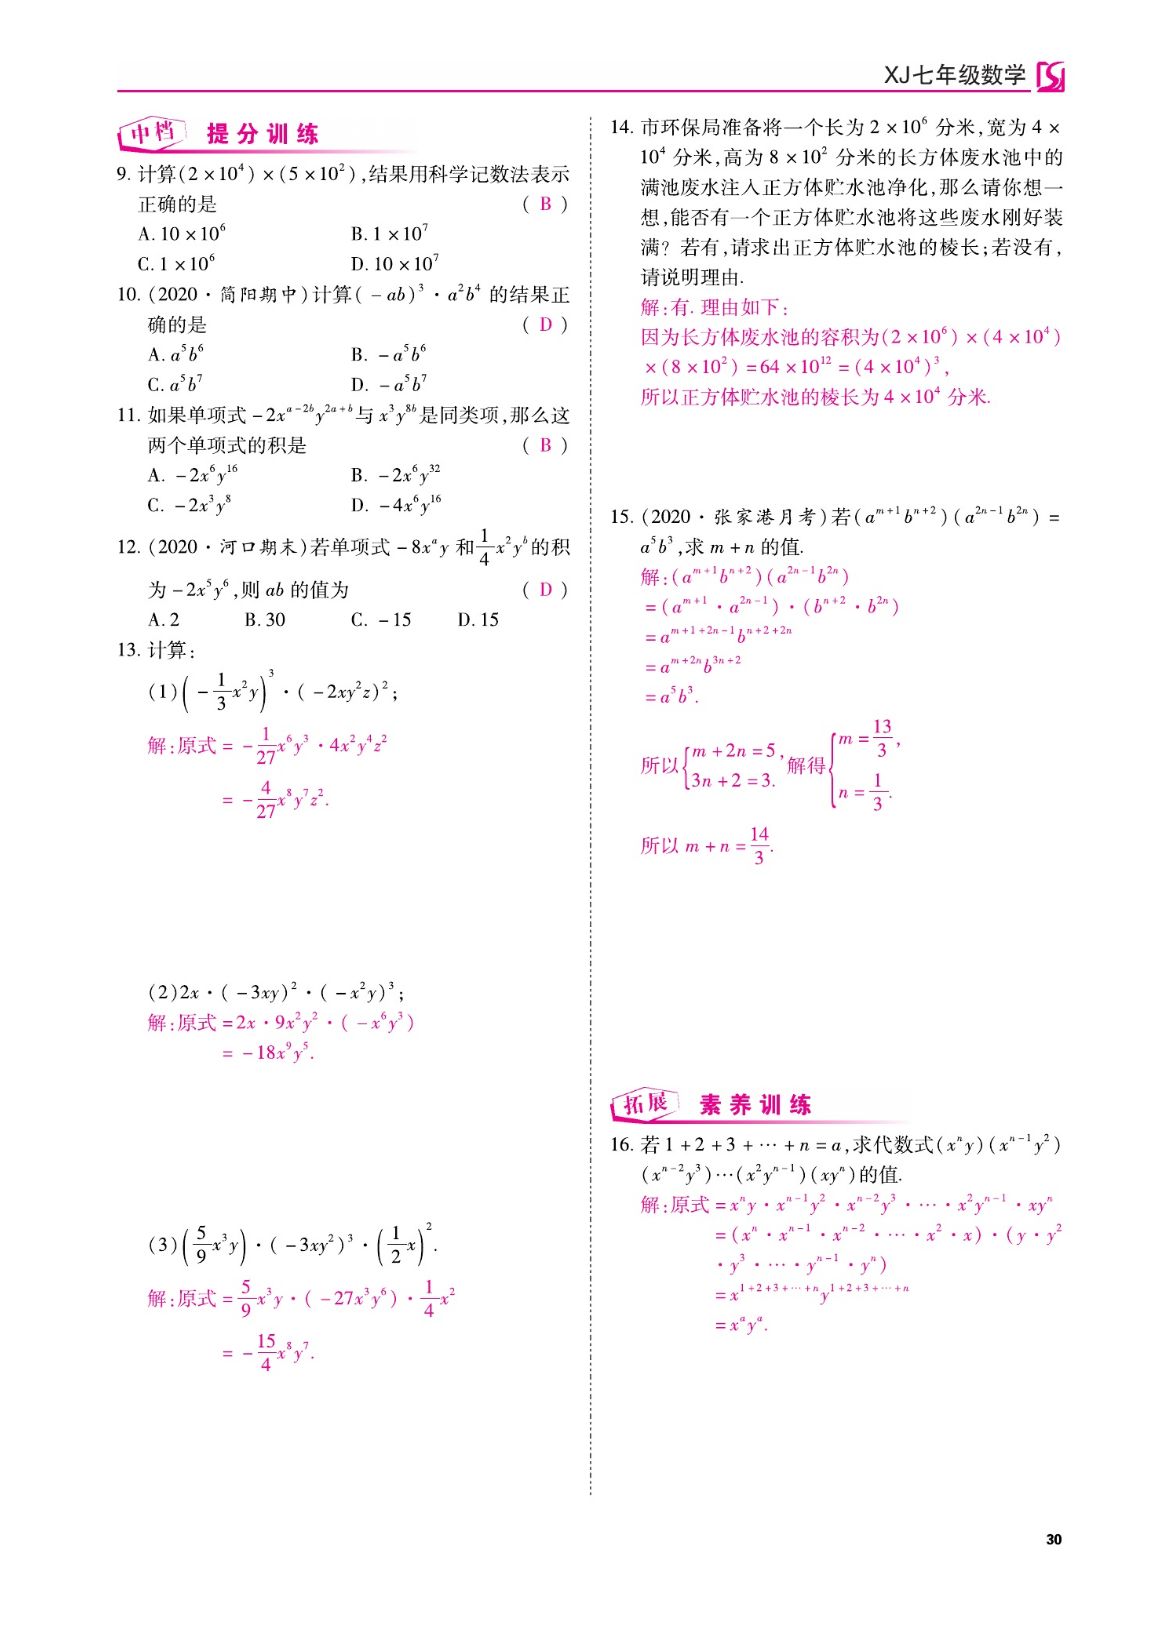 XJ七年级数学
中档 提分训练
9. 计算(2×10⁴)×(5×10²),结果用科学记数法表示
正确的是 ( B )
A. 10×10⁶ B. 1×10⁷
C. 1×10⁶ D. 10×10⁷
10. (2020·简阳期中)计算(-ab)³·a²b⁴ 的结果正
确的是 ( D )
A. a⁵b⁶ B. -a⁵b⁶
C. a⁵b⁷ D. -a⁵b⁷
11. 如果单项式 -2x^{a-2b}y^{2a+b}与 x³y^{8b}是同类项,那么这
两个单项式的积是 ( B )
A. -2x⁶y¹⁶ B. -2x⁶y³²
C. -2x³y⁸ D. -4x⁶y¹⁶
12. (2020·河口期末)若单项式 -8x^a y 和\frac{1}{4}x²y^b的积
为 -2x⁵y⁶,则 ab 的值为 ( D )
A. 2 B. 30 C. -15 D. 15
13. 计算:
(1)(-\frac{1}{3}x²y)³·(-2xy²z)²;
解:原式 = -\frac{1}{27}x⁶y³·4x²y⁴z²
= -\frac{4}{27}x⁸y⁷z².
(2)2x·(-3xy)²·(-x²y)³;
解:原式 =2x·9x²y²·(-x⁶y³)
= -18x⁹y⁵.
(3)(\frac{5}{9}x³y)·(-3xy²)³·(\frac{1}{2}x)².
解:原式 =\frac{5}{9}x³y·(-27x³y⁶)·\frac{1}{4}x²
= -\frac{15}{4}x⁸y⁷.
14. 市环保局准备将一个长为 2×10⁶ 分米,宽为 4×
10⁴ 分米,高为 8×10² 分米的长方体废水池中的
满池废水注入正方体贮水池净化,那么请你想一
想,能否有一个正方体贮水池将这些废水刚好装
满? 若有,请求出正方体贮水池的棱长;若没有,
请说明理由.
解:有. 理由如下:
因为长方体废水池的容积为(2×10⁶)×(4×10⁴)
×(8×10²)=64×10¹²=(4×10⁴)³,
所以正方体贮水池的棱长为 4×10⁴ 分米.
15. (2020·张家港月考)若(a^{m+1}b^{n+2})(a^{2n-1}b^{2n})=
a⁵b³,求 m+n 的值.
解:(a^{m+1}b^{n+2})(a^{2n-1}b^{2n})
=(a^{m+1}·a^{2n-1})·(b^{n+2}·b^{2n})
=a^{m+1+2n-1}b^{n+2+2n}
=a^{m+2n}b^{3n+2}
=a⁵b³.
所以{m+2n=5, 3n+2=3. 解得{m=\frac{13}{3}, n=\frac{1}{3}.
所以 m+n=\frac{14}{3}.
拓展 素养训练
16. 若 1+2+3+…+n=a,求代数式(xⁿy)(x^{n-1}y²)
(x^{n-2}y³)…(x²y^{n-1})(xyⁿ)的值.
解:原式 =xⁿy·x^{n-1}y²·x^{n-2}y³·…·x²y^{n-1}·xyⁿ
=(xⁿ·x^{n-1}·x^{n-2}·…·x²·x)·(y·y²
·y³·…·y^{n-1}·yⁿ)
=x^{1+2+3+…+n}y^{1+2+3+…+n}
=x^a y^a.
30